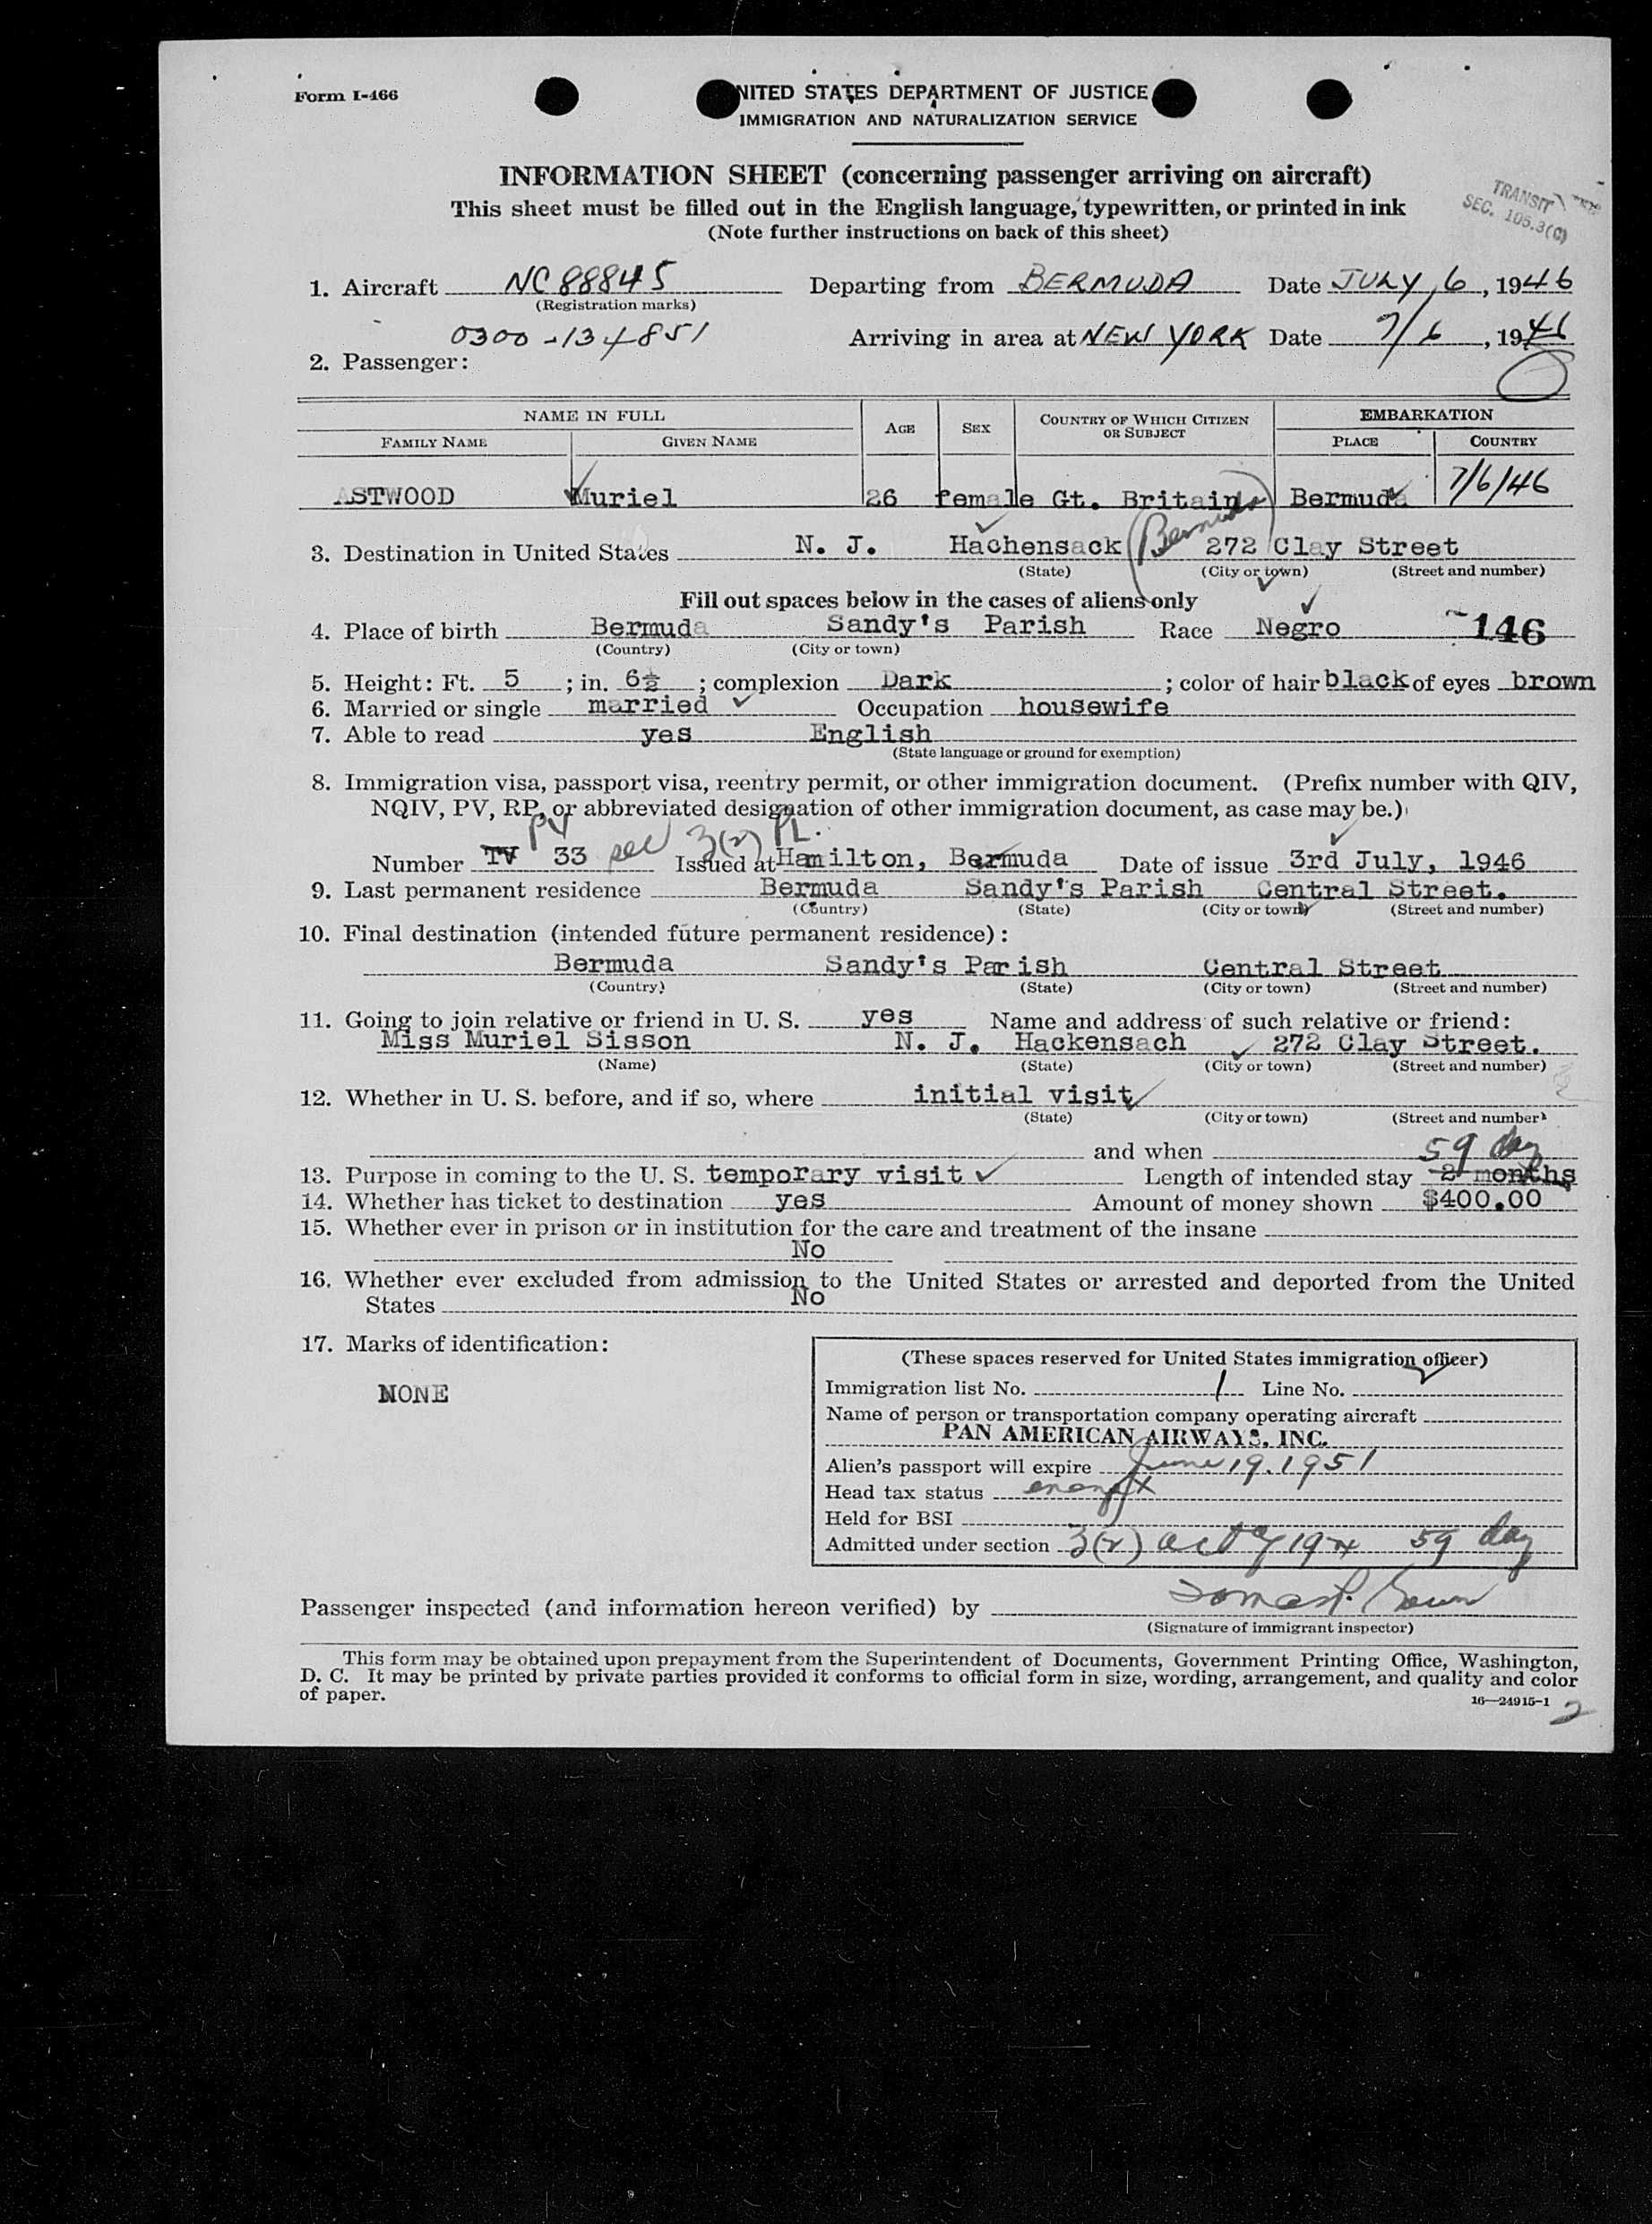 Form I-466
NITED STATES DEPARTMENT OF JUSTICE
IMMIGRATION AND NATURALIZATION SERVICE
INFORMATION SHEET (concerning passenger arriving on aircraft)
This sheet must be filled out in the English language, typewritten, or printed in ink
(Note further instructions on back of this sheet)
TRANSIT
SEC. 105.3(C)
1. Aircraft NC 88845 Departing from BERMUDA Date JULY 6, 1946
(Registration marks)
0300-134851 Arriving in area at NEW YORK Date 7/6, 1946
2. Passenger:
NAME IN FULL AGE SEX COUNTRY OF WHICH CITIZEN OR SUBJECT EMBARKATION
FAMILY NAME GIVEN NAME PLACE COUNTRY
ASTWOOD Muriel 26 female Gt. Britain (Bermuda) Bermuda 7/6/46
3. Destination in United States N. J. Hachensack 272 Clay Street
(State) (City or town) (Street and number)
Fill out spaces below in the cases of aliens only
4. Place of birth Bermuda Sandy's Parish Race Negro 146
(Country) (City or town)
5. Height: Ft. 5; in. 6½; complexion Dark; color of hair black of eyes brown
6. Married or single married Occupation housewife
7. Able to read yes English
(State language or ground for exemption)
8. Immigration visa, passport visa, reentry permit, or other immigration document. (Prefix number with QIV,
NQIV, PV, RP, or abbreviated designation of other immigration document, as case may be.)
PV 3(2) PL.
Number TV 33 sec Issued at Hamilton, Bermuda Date of issue 3rd July, 1946
9. Last permanent residence Bermuda Sandy's Parish Central Street.
(Country) (State) (City or town) (Street and number)
10. Final destination (intended future permanent residence):
Bermuda Sandy's Parish Central Street
(Country) (State) (City or town) (Street and number)
11. Going to join relative or friend in U. S. yes Name and address of such relative or friend:
Miss Muriel Sisson N. J. Hackensach 272 Clay Street.
(Name) (State) (City or town) (Street and number)
12. Whether in U. S. before, and if so, where initial visit
(State) (City or town) (Street and number)
and when
59 day
13. Purpose in coming to the U. S. temporary visit Length of intended stay 2 months
14. Whether has ticket to destination yes Amount of money shown $400.00
15. Whether ever in prison or in institution for the care and treatment of the insane
No
16. Whether ever excluded from admission to the United States or arrested and deported from the United
States No
17. Marks of identification:
NONE
(These spaces reserved for United States immigration officer)
Immigration list No. 1 Line No. 2
Name of person or transportation company operating aircraft
PAN AMERICAN AIRWAYS, INC.
Alien's passport will expire June 19, 1951
Head tax status exempt
Held for BSI
Admitted under section 3(2) act of 1924 59 day
Passenger inspected (and information hereon verified) by
(Signature of immigrant inspector)
This form may be obtained upon prepayment from the Superintendent of Documents, Government Printing Office, Washington,
D. C. It may be printed by private parties provided it conforms to official form in size, wording, arrangement, and quality and color
of paper.
16—24915-1
2